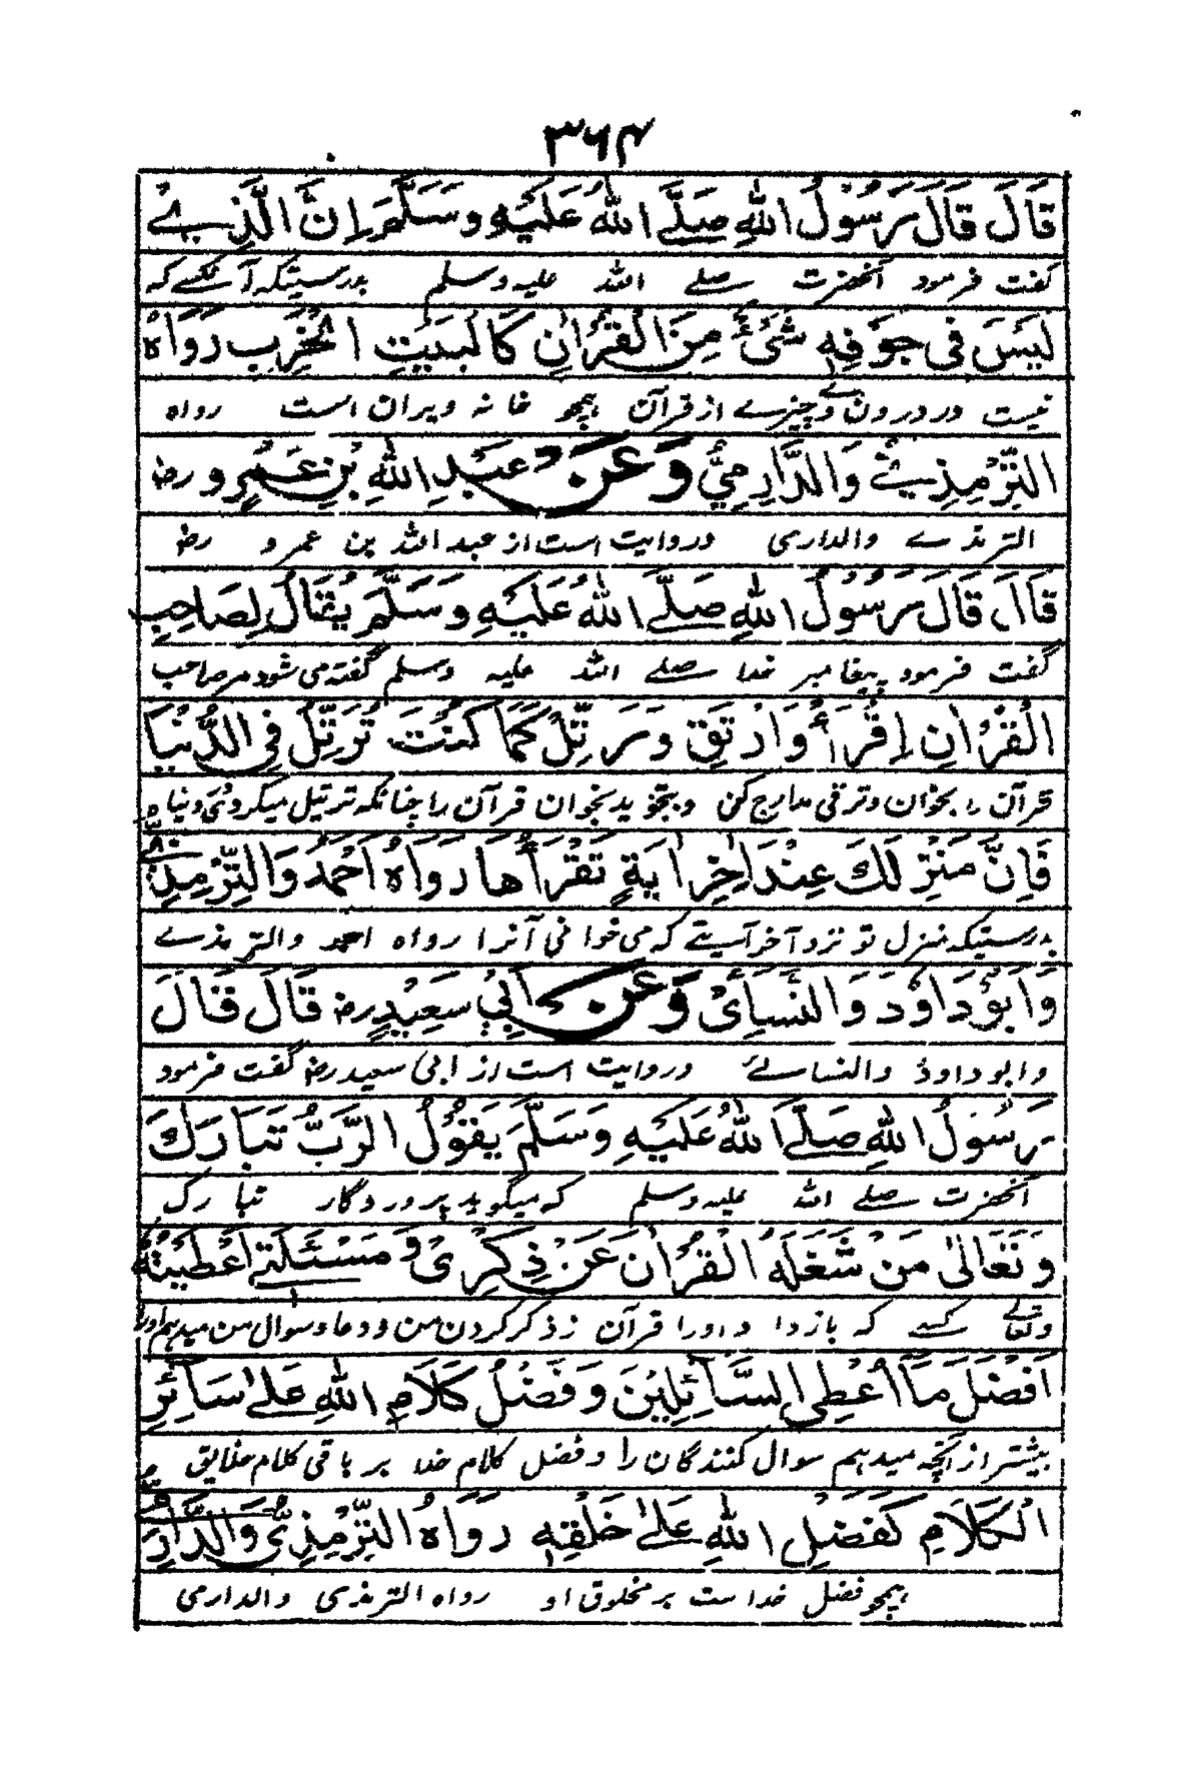 ۳۶۴
قَالَ قَالَ رَسُوْلُ اللهِ صَلَّے اللهُ عَلَيْهِ وَسَلَّمَ اِنَّ الَّذِيْ
گفت فرمود آنحضرت صلے اللہ علیہ وسلم بدرستیکہ آنکسے کہ
لَيْسَ فِي جَوْفِهٖ شَيْئٌ مِنَ الْقُرْاٰنِ كَالْبَيْتِ الْخَرِبِ رَوَاهُ
نیست در درون وے چیزے از قرآن ہمچو خانہ ویران است رواه
التِّرْمِذِيُّ وَالدَّارِمِيُّ وَعَنْ عَبْدِ اللهِ بْنِ عَمْرٍو رض
الترمذے والدارمی وروایت است از عبد اللہ بن عمرو رض
قَالَ قَالَ رَسُوْلُ اللهِ صَلَّے اللهُ عَلَيْهِ وَسَلَّمَ يُقَالُ لِصَاحِبِ
گفت فرمود پیغامبر خدا صلے اللہ علیہ وسلم گفتہ می شود مر صاحب
الْقُرْاٰنِ اِقْرَأْ وَارْتَقِ وَرَتِّلْ كَمَا كُنْتَ تُرَتِّلُ فِي الدُّنْيَا
قرآن را بخوان وترقی مدارج کن وبتجوید بخوان قرآن را چنانکہ ترتیل میکردی در دنیا
فَاِنَّ مَنْزِلَكَ عِنْدَ اٰخِرِ اٰيَةٍ تَقْرَأُهَا رَوَاهُ اَحْمَدُ وَالتِّرْمِذِيُّ
بدرستیکہ منزل تو نزد آخر آیتے کہ می خوانی آنرا رواه احمد والترمذے
وَاَبُوْدَاوٗدَ وَالنَّسَائِيُّ وَعَنْ اَبِيْ سَعِيْدٍ رض قَالَ قَالَ
وابوداود والنسائے وروایت است از ابی سعید رض گفت فرمود
رَسُوْلُ اللهِ صَلَّے اللهُ عَلَيْهِ وَسَلَّمَ يَقُوْلُ الرَّبُّ تَبَارَكَ
آنحضرت صلے اللہ علیہ وسلم کہ میگوید پروردگار تبارک
وَتَعَالٰى مَنْ شَغَلَهُ الْقُرْاٰنُ عَنْ ذِكْرِيْ وَمَسْئَلَتِيْ اَعْطَيْتُهُ
وتعالے کسے کہ بازدارد اورا قرآن ز ذکر کردن من و دعا وسوال من میدہم اورا
اَفْضَلَ مَا اُعْطِي السَّائِلِيْنَ وَفَضْلُ كَلَامِ اللهِ عَلٰى سَائِرِ
بیشتر از آنچہ میدہم سوال کنندگان را وفضل کلام خدا بر باقی کلام خلایق
الْكَلَامِ كَفَضْلِ اللهِ عَلٰى خَلْقِهٖ رَوَاهُ التِّرْمِذِيُّ وَالدَّارِمِيُّ
ہمچو فضل خداست بر مخلوق او رواه الترمذی والدارمی